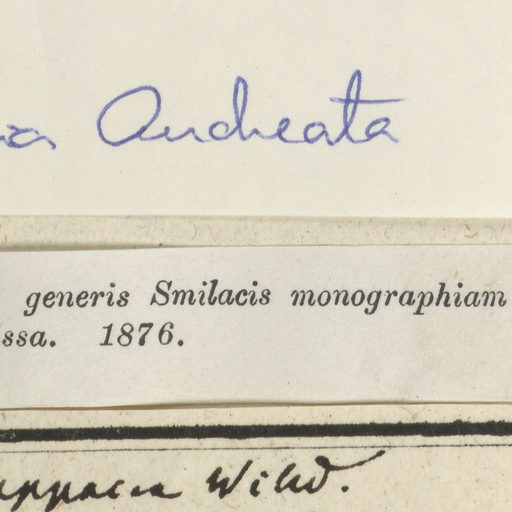 Andreata
generis Smilacis monographiam
issa. 1876.
appacea Willd.